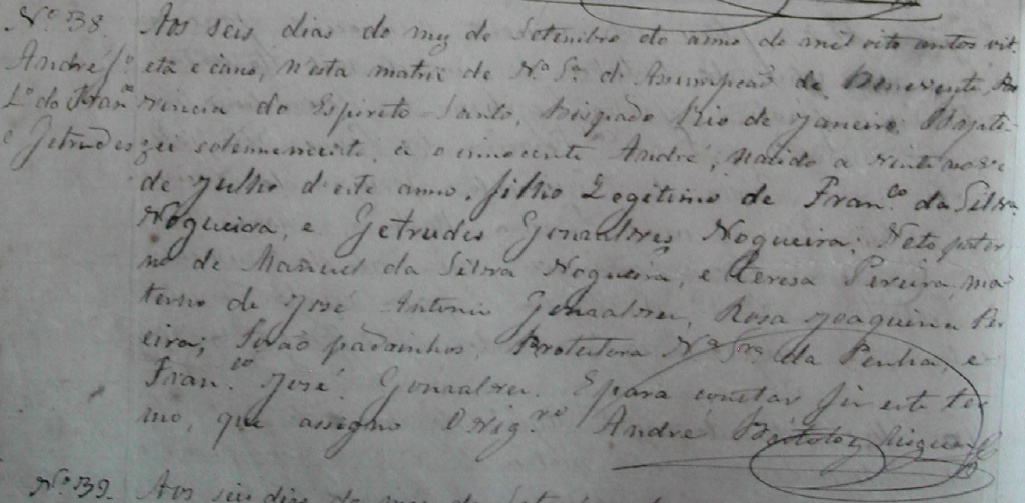 Nº 38. Aos seis dias do mez de Setembro do anno de mil oito centos oit
André fº. etá e cinco, nesta matriz de Nª Sª d'Assumpção de Benevente, Pro
Lº. de Franco vincia do Espirito Santo, Bispado Rio de Janeiro, Bapti
e Getrudes zei solemnemente, a o innocente André, nacido a vinte nove
de Julho d'este anno, filho Legitimo de Fran.co da Silva
Nogueira, e Getrudes Gonzalves Nogueira; Neto pater
no de Manuel da Silva Nogueira, e Teresa Pereira, ma
terno de José Antonio Gonzalves, Rosa Joaquina Pe
reira; Forão padrinhos, Protectora Nª Srª da Penha, e
Fran.co José Gonzalves. E para constar fiz este ter
mo, que assigno O Vigr.o André
Nº 39. Aos seis dias do mez de Set